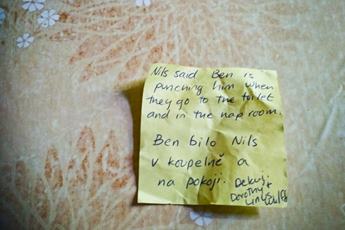 Nils said Ben is
punching him when
they go to the toilet
and in the nap room.
Ben bilo Nils
v koupelně a
na pokoji. Dekuji
Dorothy